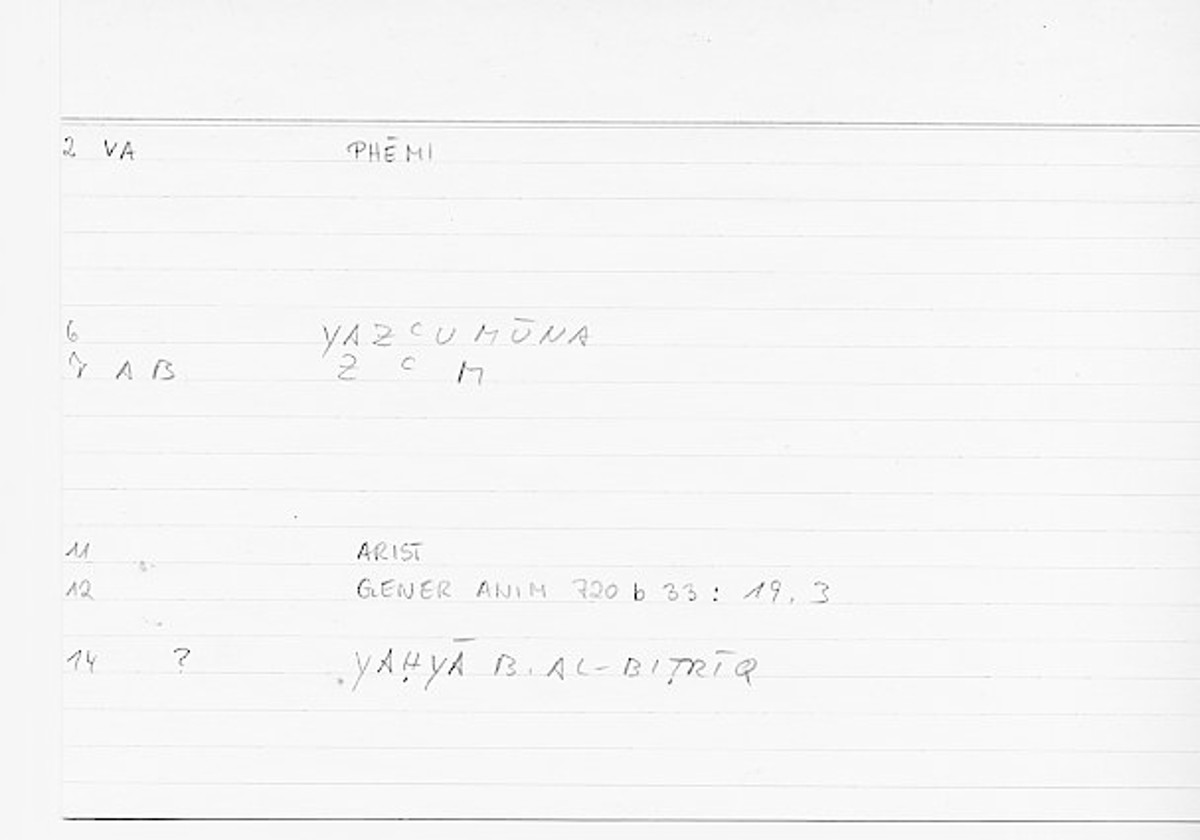 2 VA PHĒMI
6 YAZ ᶜU MŪNA
7 A B Z ᶜ M
11 ARIST
12 GENER ANIM 720 b 33 : 19, 3
14 ? YAḤYĀ B. AL-BIṬRĪQ